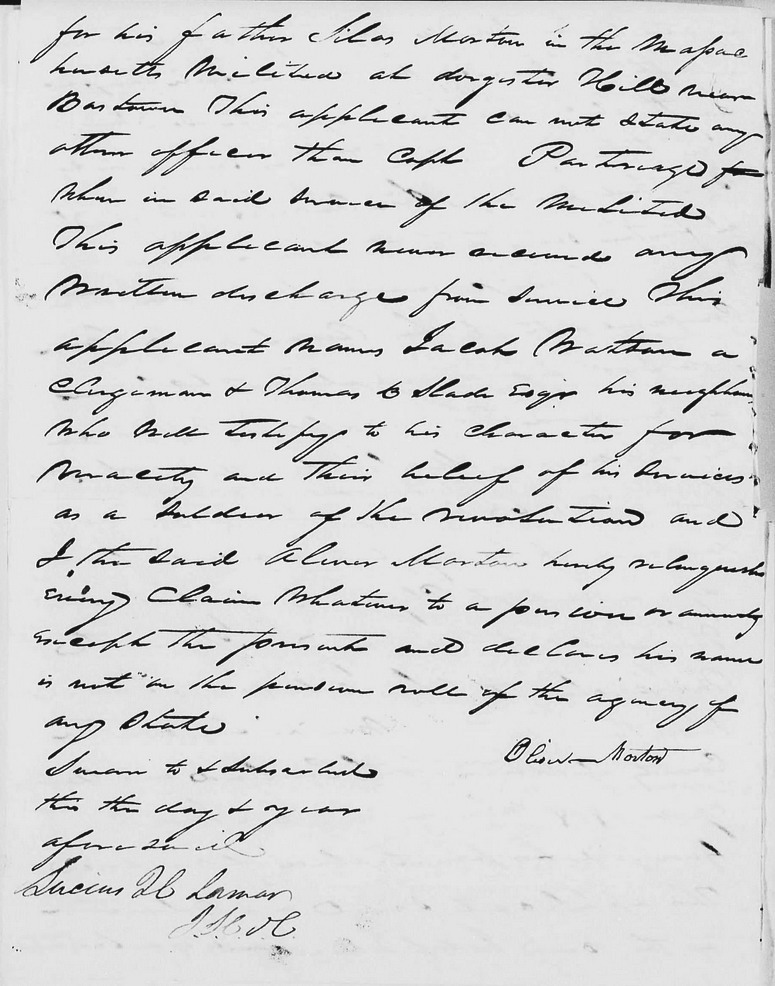 for his father Silas Morton in the Massac
husetts Militia at dorgester Hill near
Bostown This applicant can not state any
other officer than Capt Partridge
when in said service of the Militia
This applicant never received any
written discharge from service This
applicant names Jacob Watson a
Clergiman & Thomas B Slade Esqr his neighbors
who will testify to his character for
veracity and their belief of his services
as a soldier of the revolution and
I the said Oliver Morton hereby relinquish
every Claim whatever to a pension or annuity
except the present and declares his name
is not on the pension roll of the agency of
any State
Oliver Morton
Sworn to & Subscribed
the day & year
aforesaid
Lucius Q C Lamar